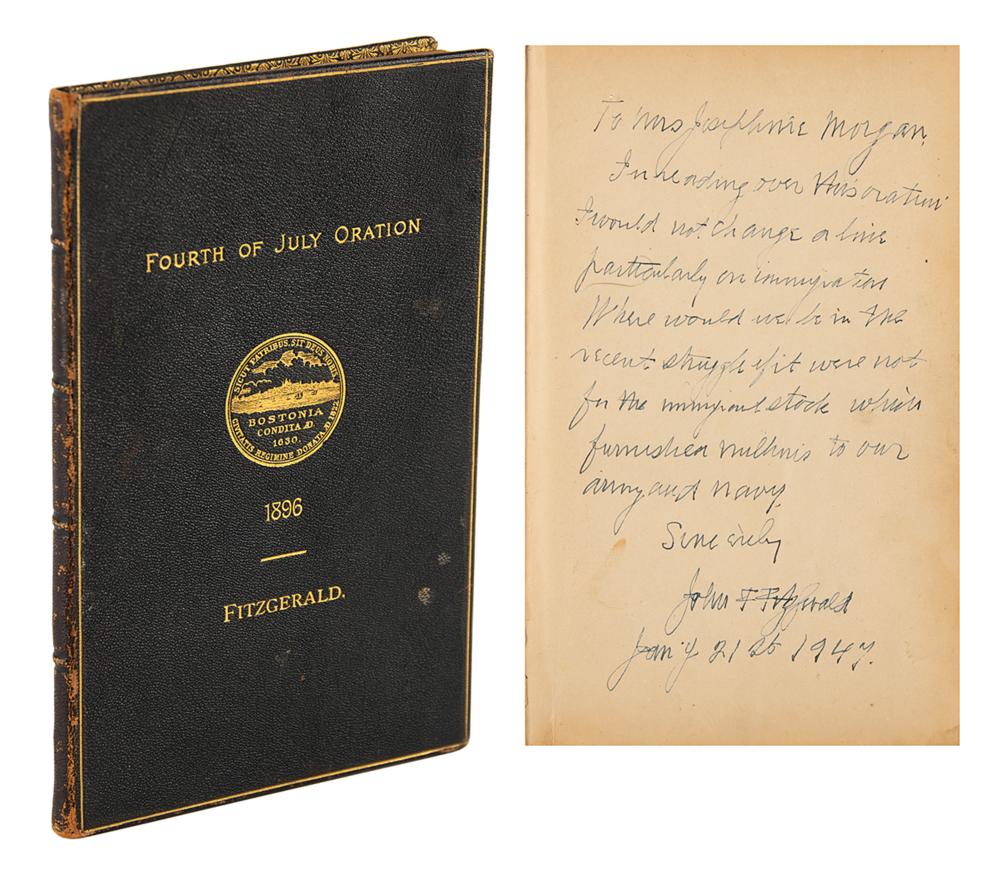 FOURTH OF JULY ORATION
SICUT PATRIBUS, SIT DEUS NOBIS
BOSTONIA
CONDITA AD
1630.
CIVITATIS REGIMINE DONATA AD 1822
1896
FITZGERALD.
To Mrs Josephine Morgan,
In reading over this oration
I would not change a line
particularly on immigration
Where would we be in the
recent struggle if it were not
for the immigrant stock which
furnished millions to our
army and navy
Sincerely
John F Fitzgerald
Jan'y 21st 1947.